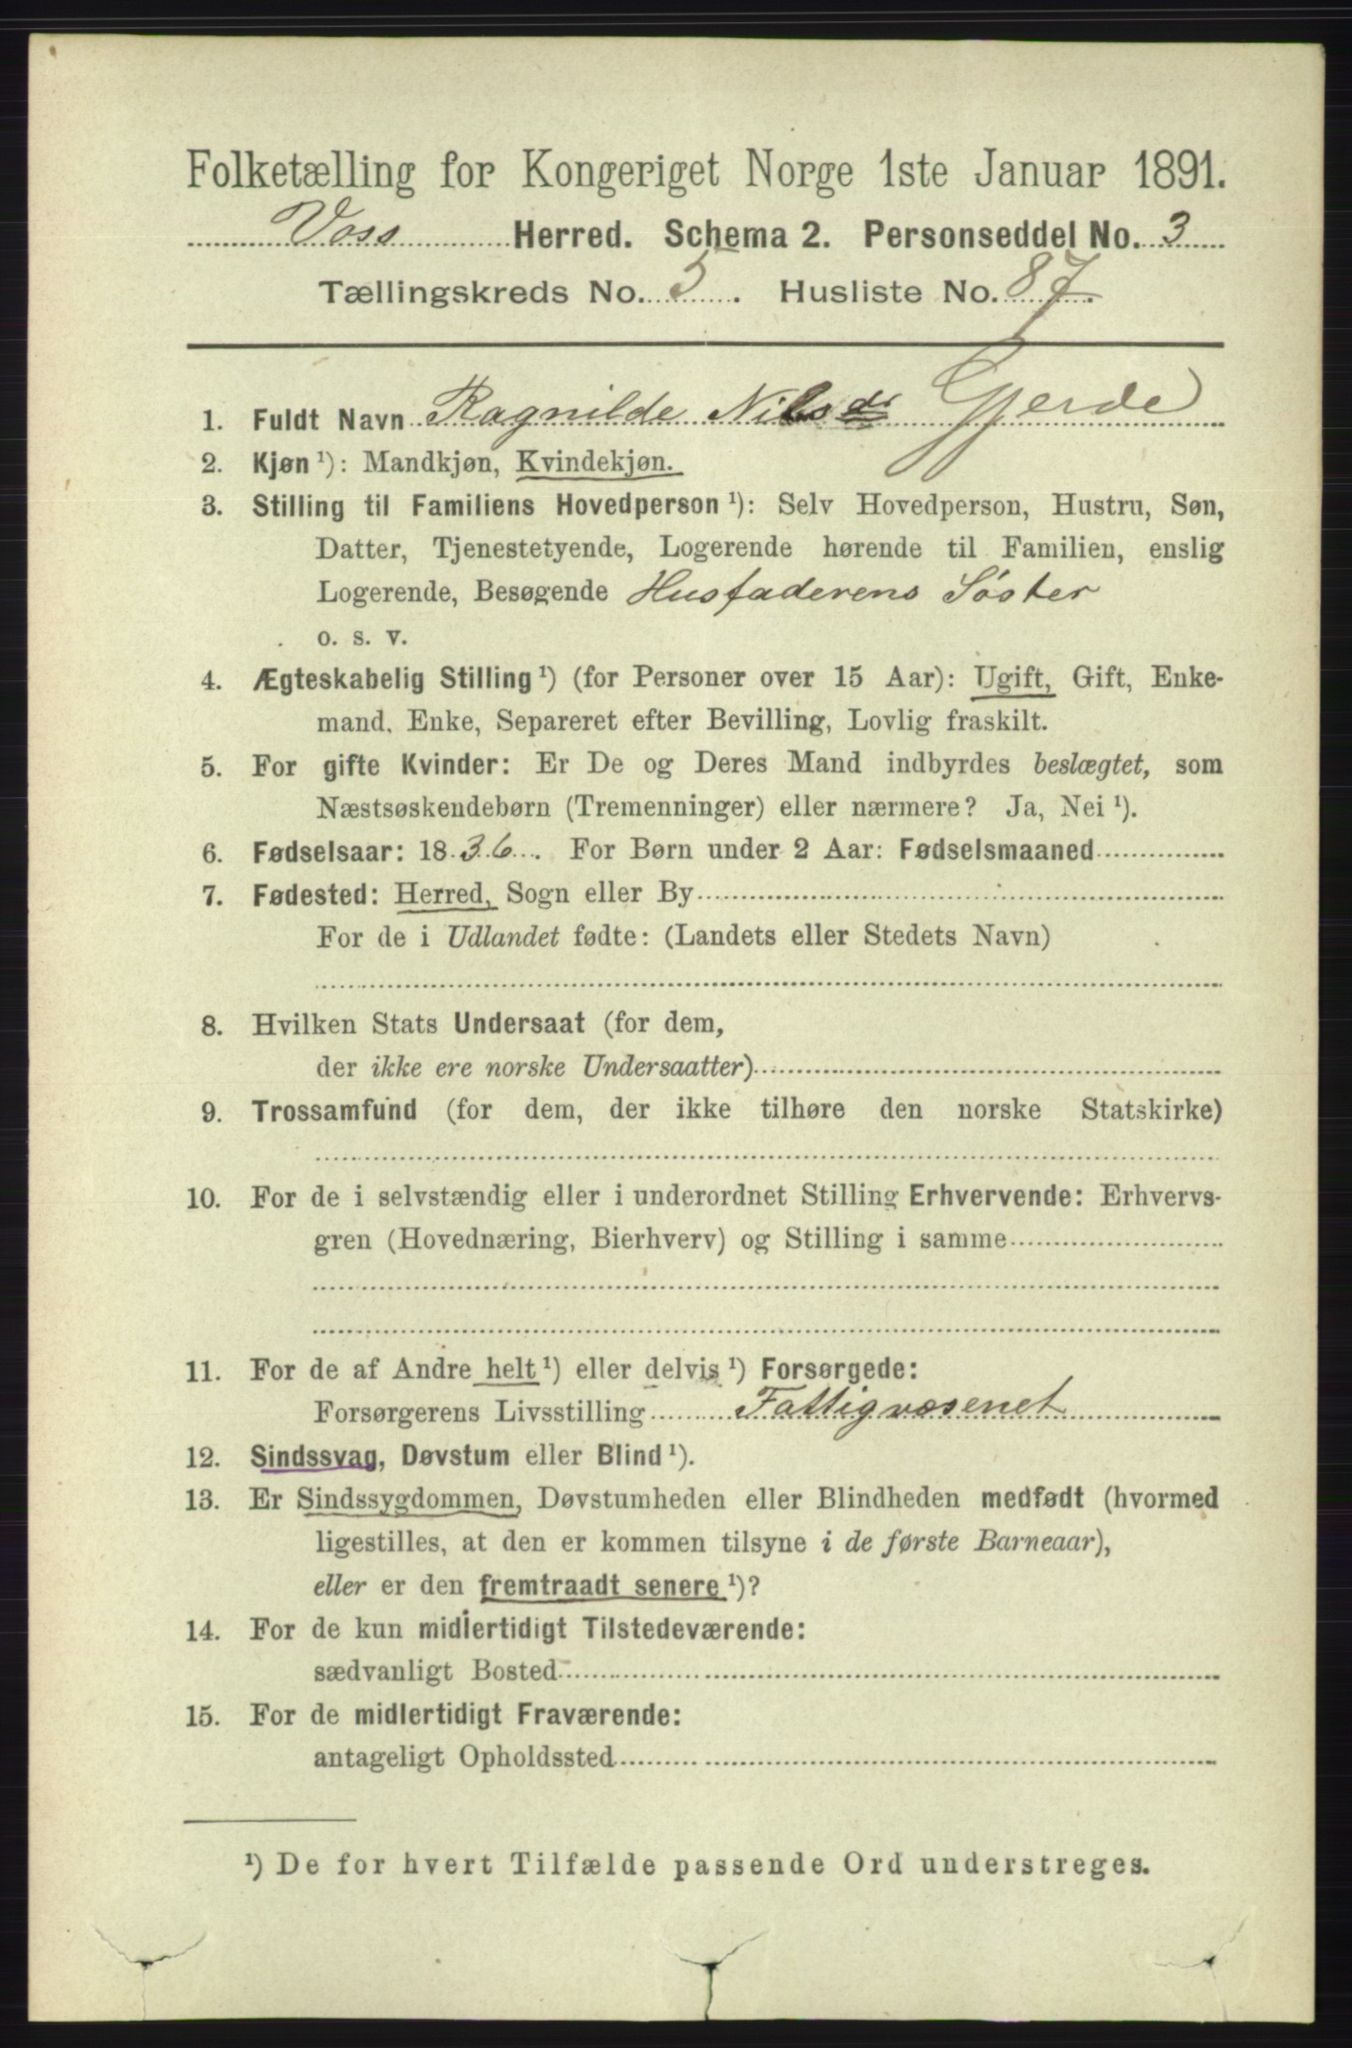 Folketælling for Kongeriget Norge 1ste Januar 1891.
Voss Herred. Schema 2. Personseddel No. 3
Tællingskreds No. 5. Husliste No. 87.
1. Fuldt Navn Ragnilde Nilsdr Gjerde
2. Kjøn ¹): Mandkjøn, Kvindekjøn.
3. Stilling til Familiens Hovedperson ¹): Selv Hovedperson, Hustru, Søn,
Datter, Tjenestetyende, Logerende hørende til Familien, enslig
Logerende, Besøgende Husfaderens Søster
o. s. v.
4. Ægteskabelig Stilling ¹) (for Personer over 15 Aar): Ugift, Gift, Enke-
mand, Enke, Separeret efter Bevilling, Lovlig fraskilt.
5. For gifte Kvinder: Er De og Deres Mand indbyrdes beslægtet, som
Næstsøskendebørn (Tremenninger) eller nærmere? Ja, Nei ¹).
6. Fødselsaar: 1836. For Børn under 2 Aar: Fødselsmaaned
7. Fødested: Herred, Sogn eller By
For de i Udlandet fødte: (Landets eller Stedets Navn)
8. Hvilken Stats Undersaat (for dem,
der ikke ere norske Undersaatter)
9. Trossamfund (for dem, der ikke tilhøre den norske Statskirke)
10. For de i selvstændig eller i underordnet Stilling Erhvervende: Erhvervs-
gren (Hovednæring, Bierhverv) og Stilling i samme
11. For de af Andre helt ¹) eller delvis ¹) Forsørgede:
Forsørgerens Livsstilling Fattigvæsenet
12. Sindssvag, Døvstum eller Blind ¹).
13. Er Sindssygdommen, Døvstumheden eller Blindheden medfødt (hvormed
ligestilles, at den er kommen tilsyne i de første Barneaar),
eller er den fremtraadt senere ¹)?
14. For de kun midlertidigt Tilstedeværende:
sædvanligt Bosted
15. For de midlertidigt Fraværende:
antageligt Opholdssted
¹) De for hvert Tilfælde passende Ord understreges.